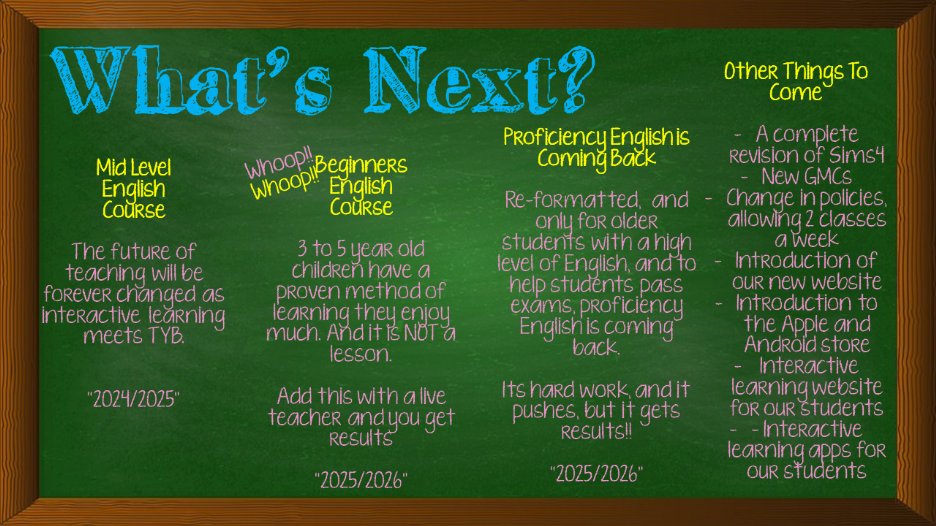 What's Next?
Mid Level
English
Course
The future of
teaching will be
forever changed as
interactive learning
meets TYB.
"2024/2025"
Whoop!!
Whoop!!
Beginners
English
Course
3 to 5 year old
children have a
proven method of
learning they enjoy
much. And it is NOT a
lesson.
Add this with a live
teacher and you get
results
"2025/2026"
Proficiency English is
Coming Back
Re-formatted, and
only for older
students with a high
level of English, and to
help students pass
exams, proficiency
English is coming
back.
Its hard work, and it
pushes, but it gets
results!!
"2025/2026"
Other Things To
Come
- A complete
revision of Sims4
- New GMCs
- Change in policies,
allowing 2 classes
a week
- Introduction of
our new website
- Introduction to
the Apple and
Android store
- Interactive
learning website
for our students
- - Interactive
learning apps for
our students